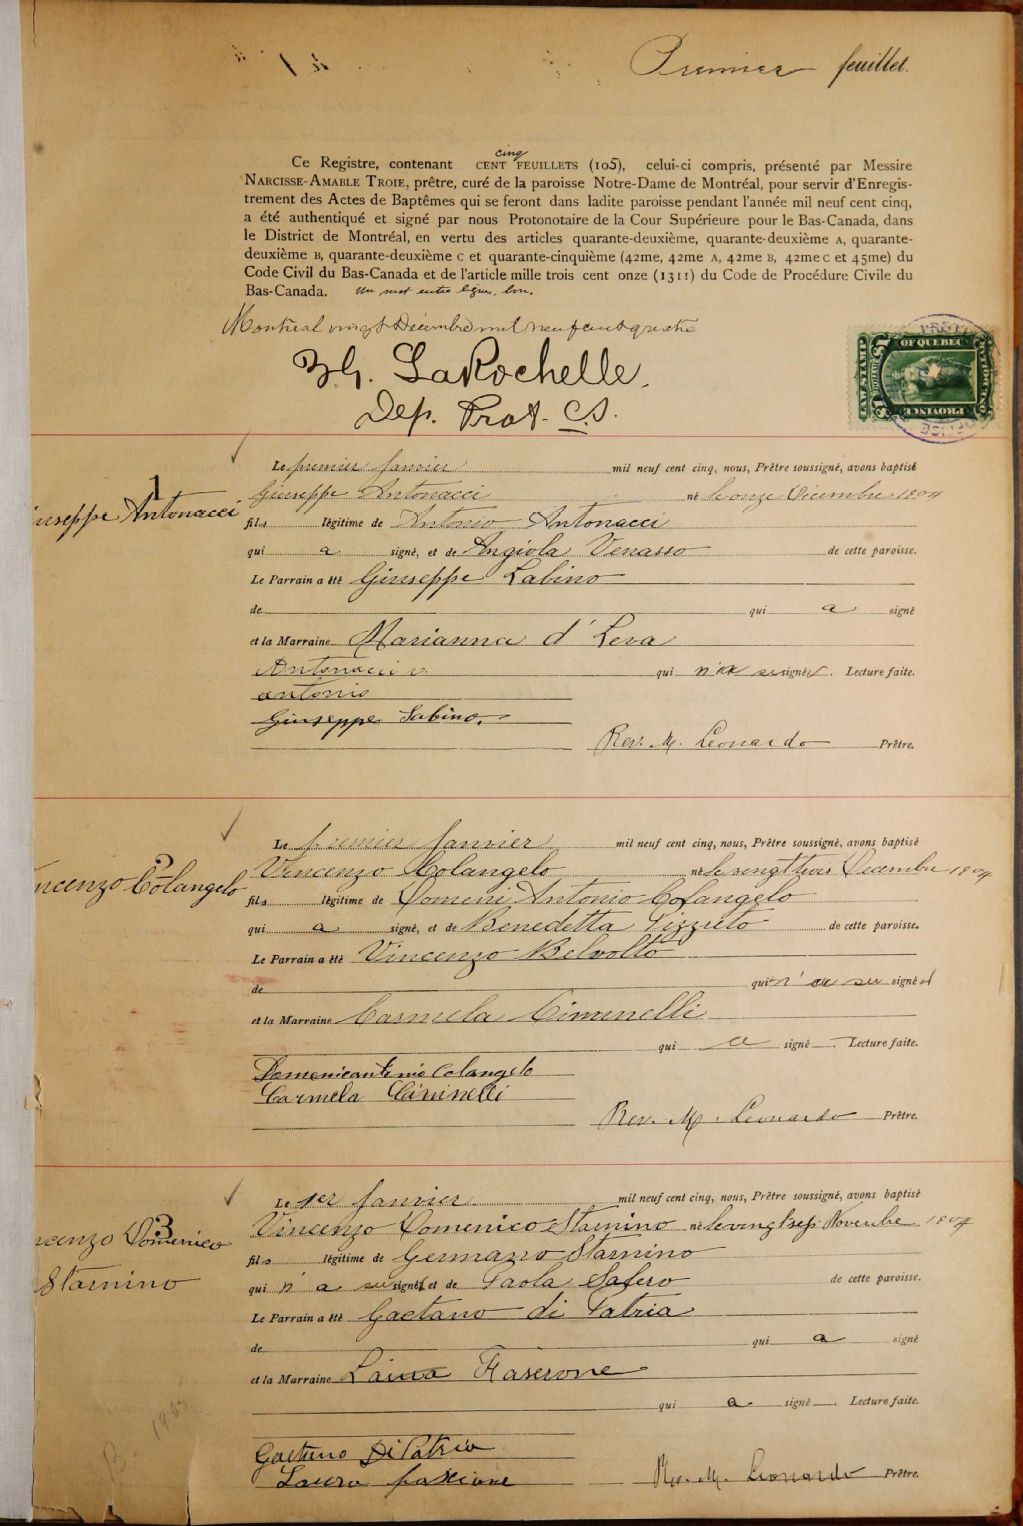 Premier feuillet.
cinq
Ce Registre, contenant CENT FEUILLETS (105), celui-ci compris, présenté par Messire
NARCISSE-AMABLE TROIE, prêtre, curé de la paroisse Notre-Dame de Montréal, pour servir d'Enregis-
trement des Actes de Baptêmes qui se feront dans ladite paroisse pendant l'année mil neuf cent cinq,
a été authentiqué et signé par nous Protonotaire de la Cour Supérieure pour le Bas-Canada, dans
le District de Montréal, en vertu des articles quarante-deuxième, quarante-deuxième A, quarante-
deuxième B, quarante-deuxième C et quarante-cinquième (42me, 42me A, 42me B, 42me C et 45me) du
Code Civil du Bas-Canada et de l'article mille trois cent onze (1311) du Code de Procédure Civile du
Bas-Canada. Un mot entre lignes, bon.
Montreal vingt Décembre mil neuf cent quatre
LaRochelle.
Dep. Prot. C.S.
LAW STAMP
OF QUEBEC
PROVINCE
$1
1
Le premier Janvier mil neuf cent cinq, nous, Prêtre soussigné, avons baptisé
Giuseppe Antonacci
Giuseppe Antonacci né le onze Décembre 1904
fils légitime de Antonio Antonacci
qui a signé, et de Angiola Venasso de cette paroisse.
Le Parrain a été Giuseppe Labino
de qui a signé
et la Marraine Marianna d'Leva
Antonacci
qui n'a su signer. Lecture faite.
antonio
Giuseppe Sabino.
Rev. M. Leonardo Prêtre.
2
Le premier Janvier mil neuf cent cinq, nous, Prêtre soussigné, avons baptisé
Vincenzo Colangelo né le vingt trois Décembre 1904
ncenzo Colangelo
fils légitime de Domeni Antonio Colangelo
qui a signé, et de Benedetta Pizzuto de cette paroisse.
Le Parrain a été Vincenzo Belvolto
de qui n'a su signer
et la Marraine Carmela Ciminelli
qui a signé Lecture faite.
Domenicantonio Colangelo
Carmela Ciminelli
Rev. M. Leonardo Prêtre.
3
Le 1er Janvier mil neuf cent cinq, nous, Prêtre soussigné, avons baptisé
Vincenzo Domenico Starnino né le vingt sep. Novembe 1904
ncenzo Domenico
Starnino
fils légitime de Germano Starnino
qui n'a su signé et de Paola Safero de cette paroisse.
Le Parrain a été Gaetano di Patria
de qui a signé
et la Marraine Laura Faserone
qui a signé Lecture faite.
Gaetano Di Patria
Laura fascione
Rev. M. Leonardo Prêtre.
B. 1905